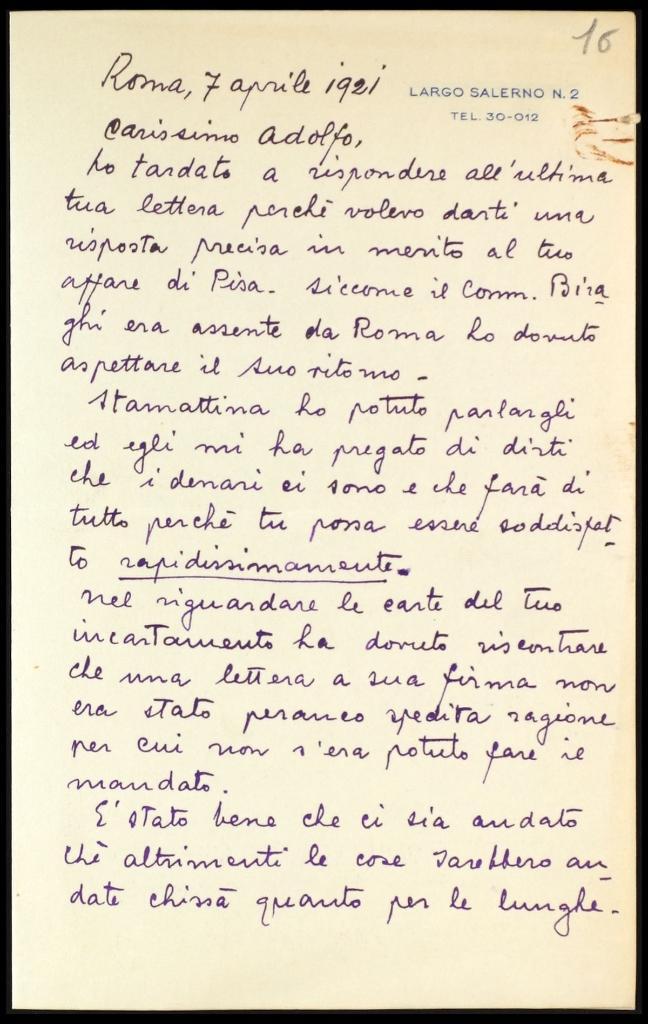 16
Roma, 7 aprile 1921
LARGO SALERNO N. 2
TEL. 30-012
Carissimo Adolfo,
ho tardato a rispondere all'ultima
tua lettera perchè volevo darti una
risposta precisa in merito al tuo
affare di Pisa. Siccome il Comm. Bira_
ghi era assente da Roma ho dovuto
aspettare il suo ritorno.
Stamattina ho potuto parlargli
ed egli mi ha pregato di dirti
che i denari ci sono e che farà di
tutto perchè tu possa essere soddisfat_
to rapidissimamente.
Nel riguardare le carte del tuo
incartamento ha dovuto riscontrare
che una lettera a sua firma non
era stato peranco spedita ragione
per cui non s'era potuto fare il
mandato.
E' stato bene che ci sia andato
chè altrimenti le cose sarebbero an_
date chissà quanto per le lunghe.